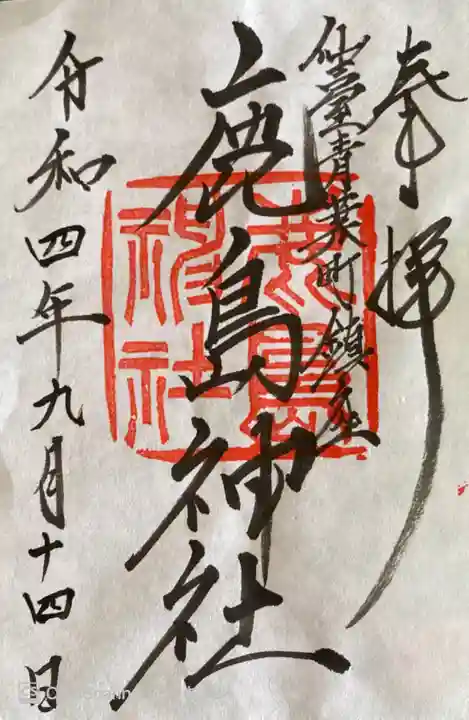 奉拝
仙臺青葉町鎮座
鹿島神社
令和四年九月十四日
鹿島
神社